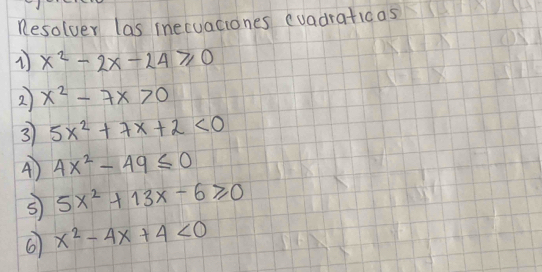 Resolver las inecuaciones cuadraticas
1) x² - 2x - 24 ≥ 0
2) x² - 7x > 0
3) 5x² + 7x + 2 < 0
4) 4x² - 49 ≤ 0
5) 5x² + 13x - 6 ≥ 0
6) x² - 4x + 4 < 0